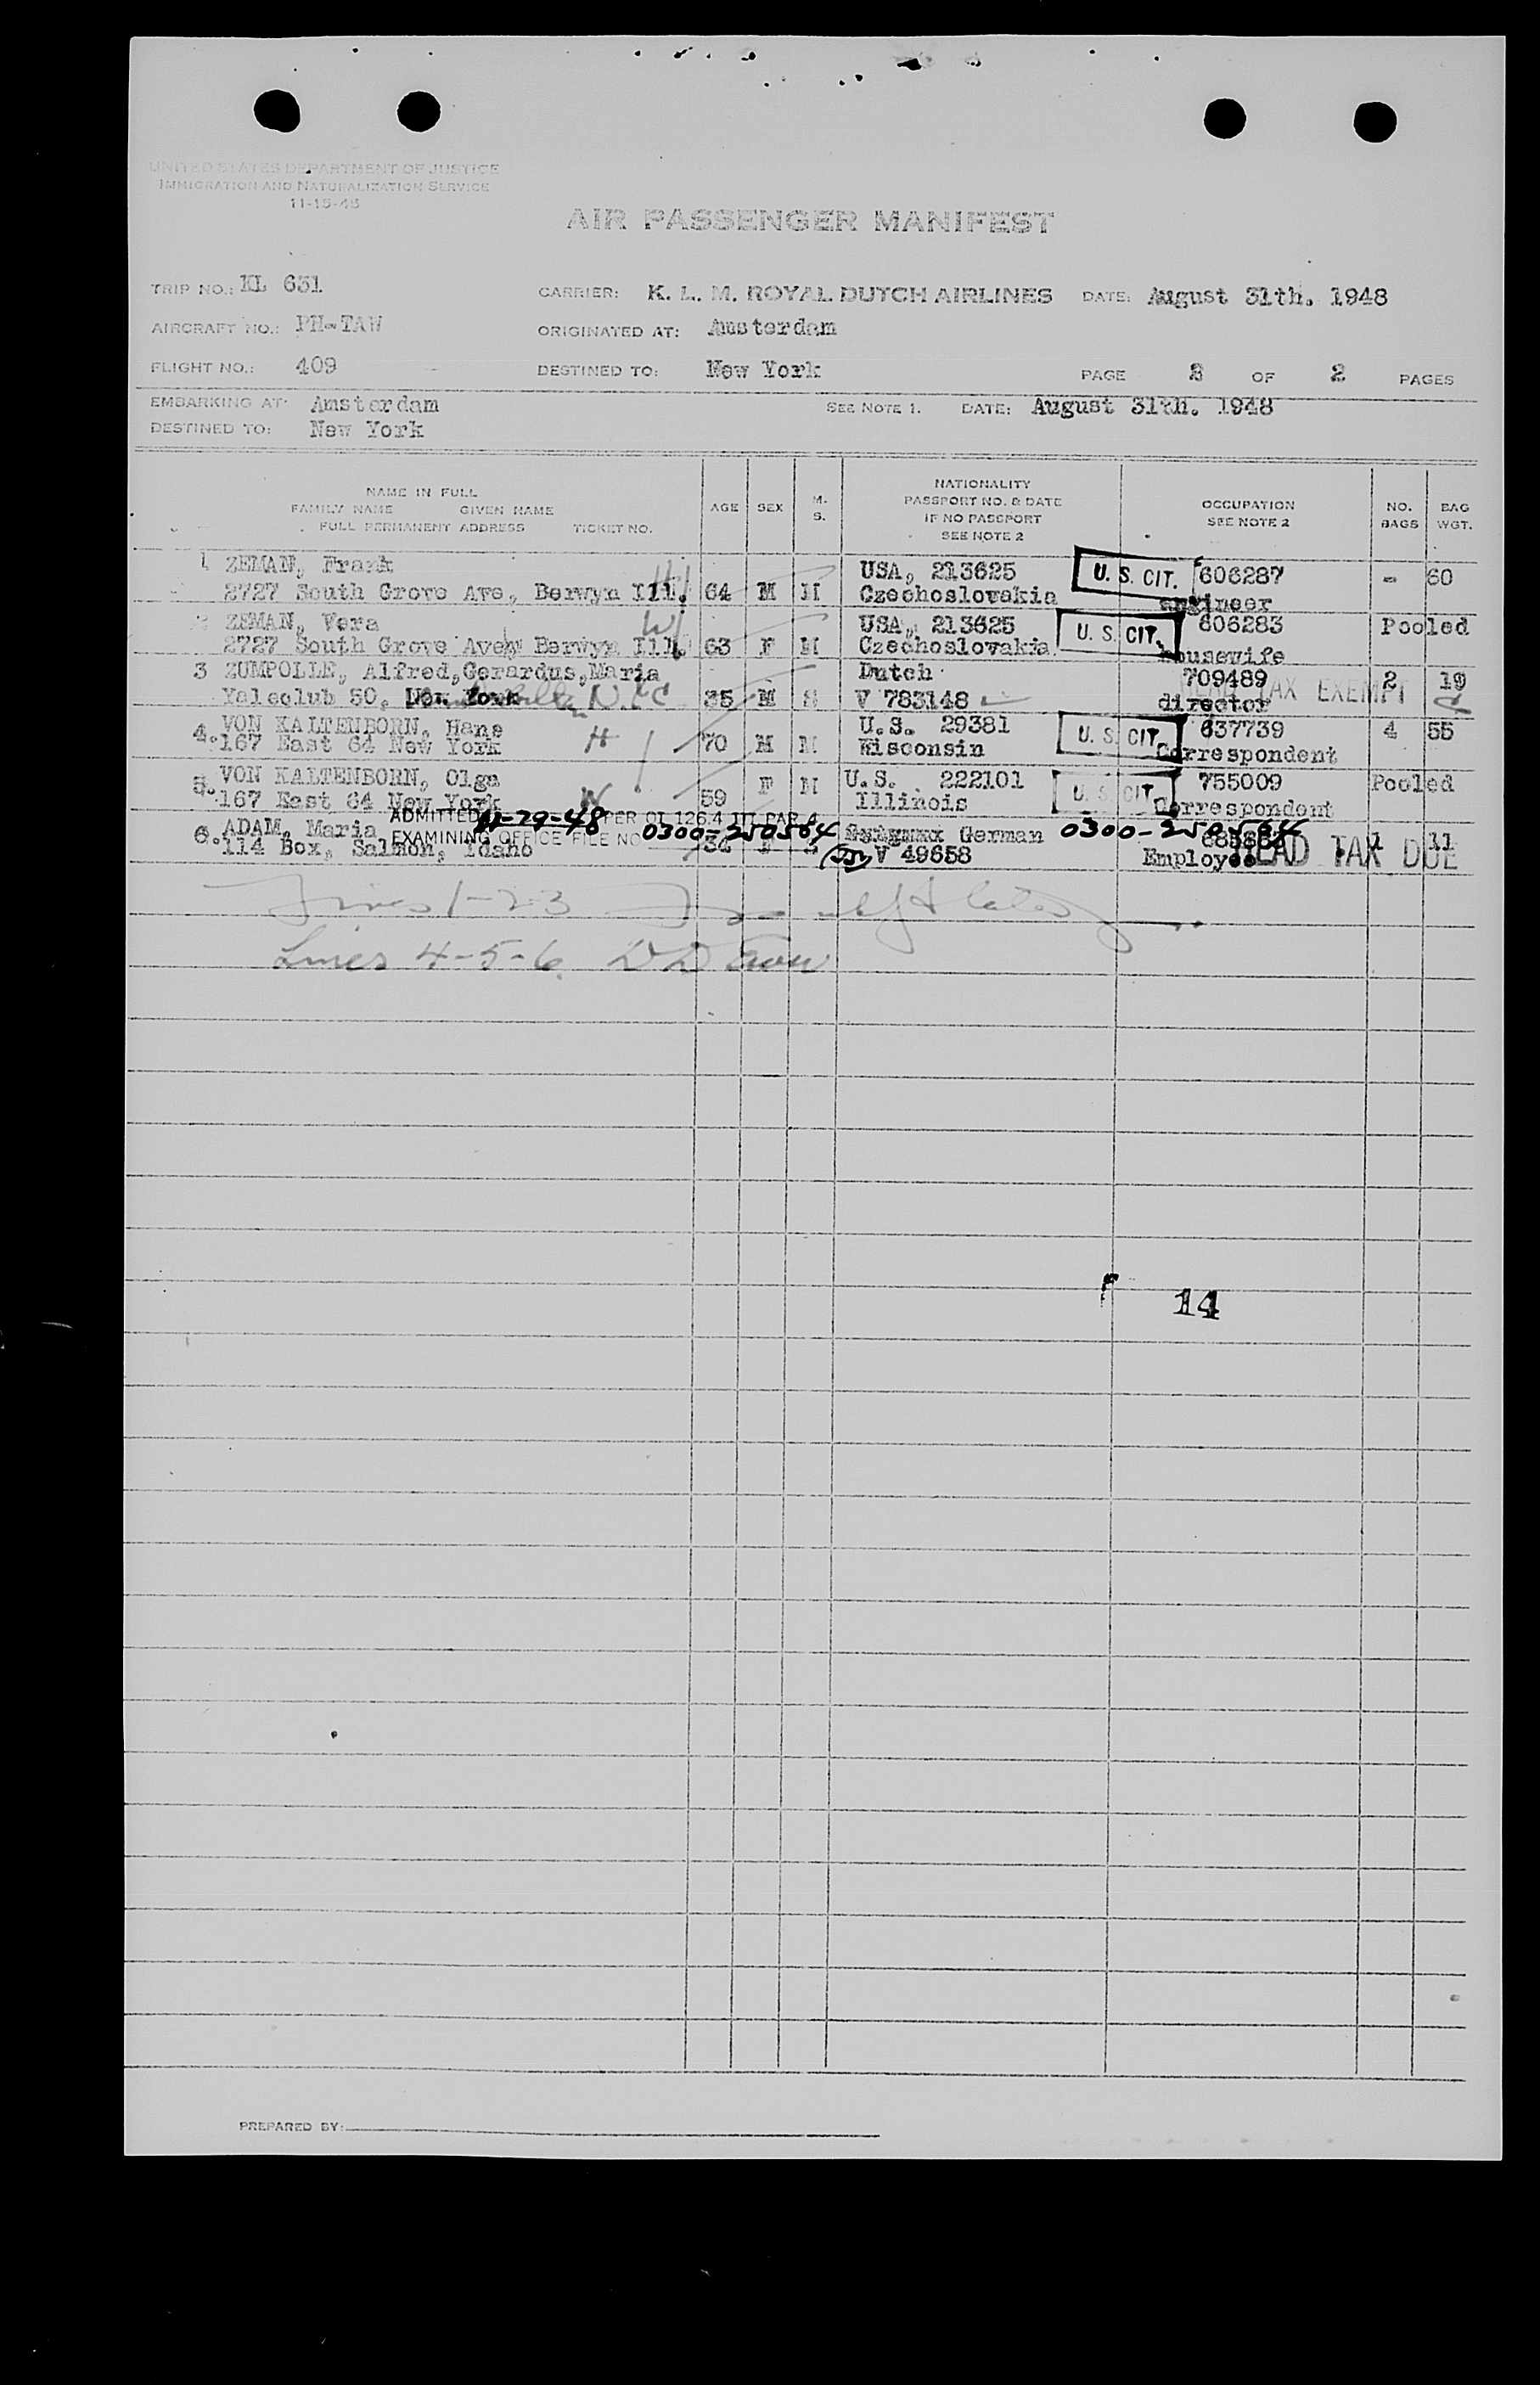 UNITED STATES DEPARTMENT OF JUSTICE
IMMIGRATION AND NATURALIZATION SERVICE
11-15-45
AIR PASSENGER MANIFEST
TRIP NO.: KL 631 CARRIER: K. L. M. ROYAL DUTCH AIRLINES DATE: August 31th. 1948
AIRCRAFT NO.: PH-TAW ORIGINATED AT: Amsterdam
FLIGHT NO.: 409 DESTINED TO: New York PAGE 2 OF 2 PAGES
EMBARKING AT: Amsterdam SEE NOTE 1. DATE: August 31th. 1948
DESTINED TO: New York
NAME IN FULL
FAMILY NAME GIVEN NAME
FULL PERMANENT ADDRESS TICKET NO.
AGE SEX M. S.
NATIONALITY
PASSPORT NO. & DATE
IF NO PASSPORT
SEE NOTE 2
OCCUPATION
SEE NOTE 2
NO. BAGS
BAG WGT.
1 ZEMAN, Frank USA, 213625 U. S. CIT. 606287 - 60
2727 South Grove Ave, Berwyn Ill. 64 M M Czechoslovakia engineer
2 ZEMAN, Vera W USA, 213625 U. S. CIT. 606283 Pooled
2727 South Grove Ave, Berwyn Ill. 63 F M Czechoslovakia housewife
3 ZUMPOLLE, Alfred,Gerardus,Maria Dutch 709489 2 19
Yaleclub 50, New York N.Y.C 35 M S V 783148 director HEAD TAX EXEMPT
4. VON KALTENBORN, Hans H U.S. 29381 U. S. CIT. 637739 4 55
167 East 64 New York 70 M M Wisconsin Correspondent
5. VON KALTENBORN, Olga F M U.S. 222101 U. S. CIT. 755009 Pooled
167 East 64 New York W 59 Illinois Correspondent
ADMITTED 11-29-48 PER OI 126.4 III PAR A
6. ADAM, Maria EXAMINING OFFICE FILE NO 0300-250564 German 0300-250564 1 11
114 Box, Salmon, Idaho 34 F S V 49658 Employee HEAD TAX DUE
Lines 1-2-3
Lines 4-5-6
14
PREPARED BY: